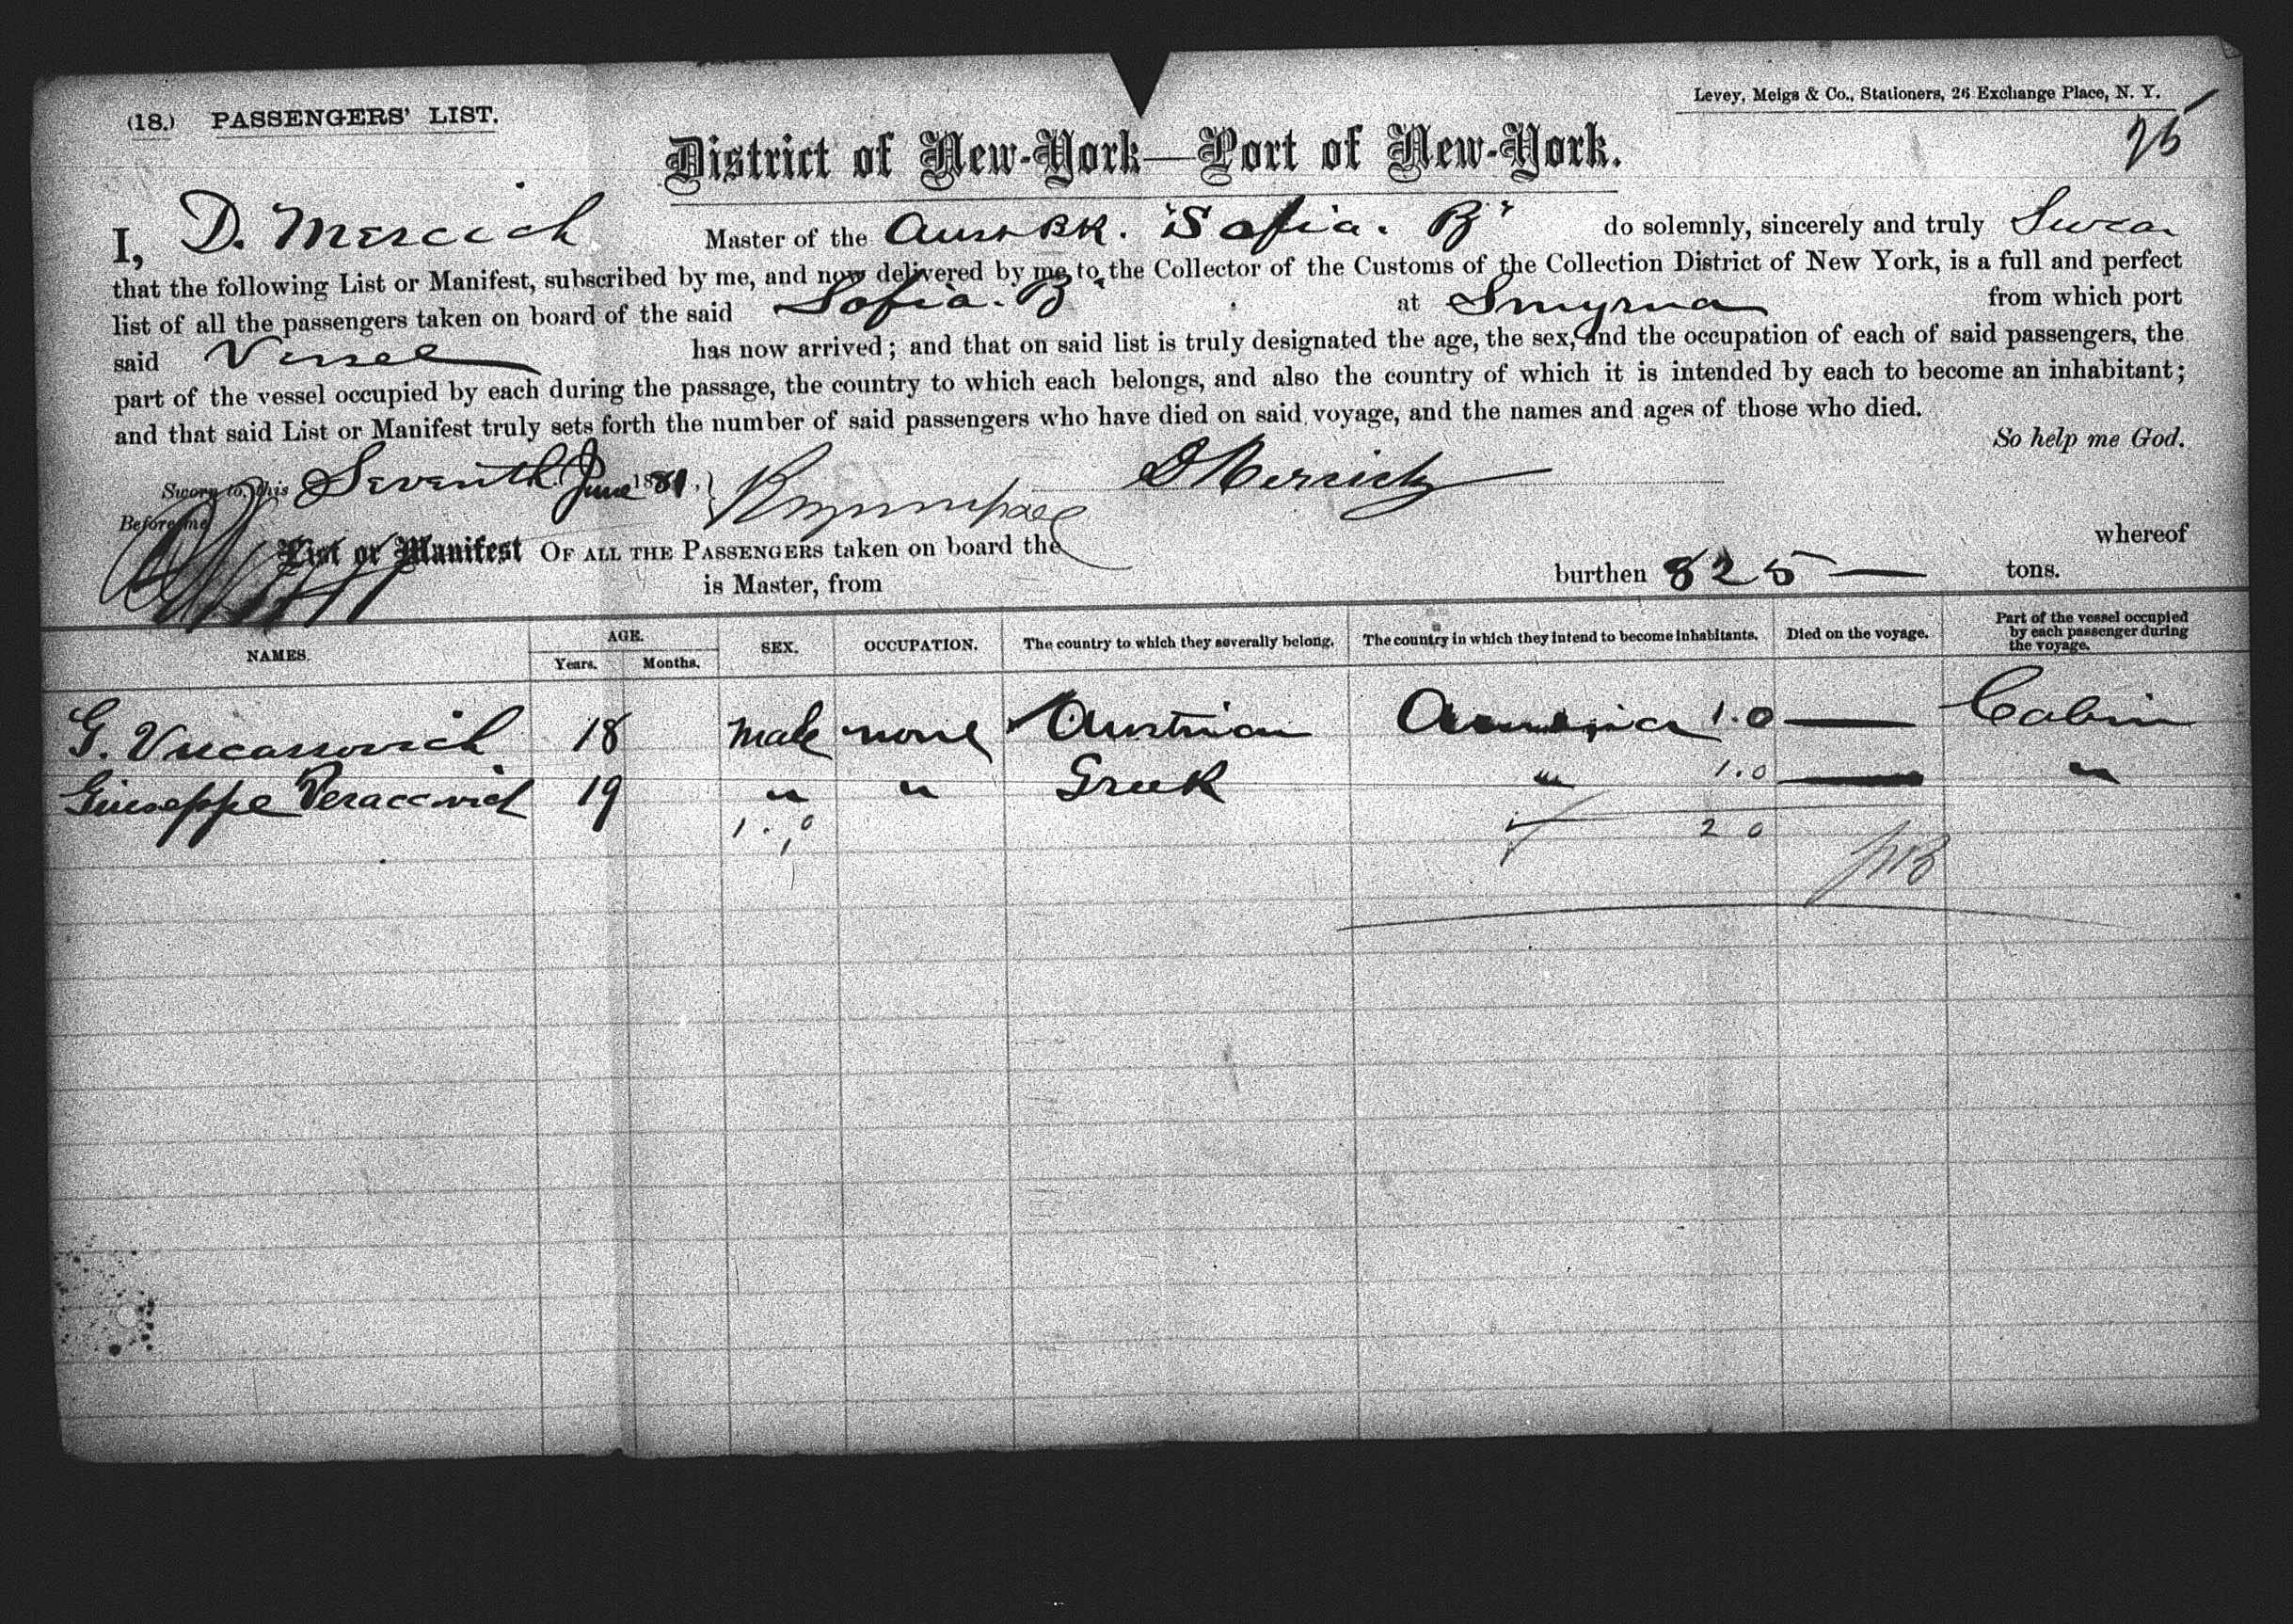 (18.) PASSENGERS' LIST.
Levey, Meigs & Co., Stationers, 26 Exchange Place, N. Y.
District of New-York—Port of New-York.
I, D. Mercich Master of the Aust BK. "Sofia. B" do solemnly, sincerely and truly Swear
that the following List or Manifest, subscribed by me, and now delivered by me to the Collector of the Customs of the Collection District of New York, is a full and perfect
list of all the passengers taken on board of the said Sofia. B at Smyrna from which port
said Vessel has now arrived; and that on said list is truly designated the age, the sex, and the occupation of each of said passengers, the
part of the vessel occupied by each during the passage, the country to which each belongs, and also the country of which it is intended by each to become an inhabitant;
and that said List or Manifest truly sets forth the number of said passengers who have died on said voyage, and the names and ages of those who died.
So help me God.
Sworn to, this Seventh June 1881.
Before me
List or Manifest OF ALL THE PASSENGERS taken on board the whereof
is Master, from burthen 825 — tons.
NAMES. AGE. Years. Months. SEX. OCCUPATION. The country to which they severally belong. The country in which they intend to become inhabitants. Died on the voyage. Part of the vessel occupied by each passenger during the voyage.
G. Vucassovich 18 Male none Austrian America 1.0 — Cabin
Giuseppe 19 " " Greek " 1.0 — "
1.0 2 0